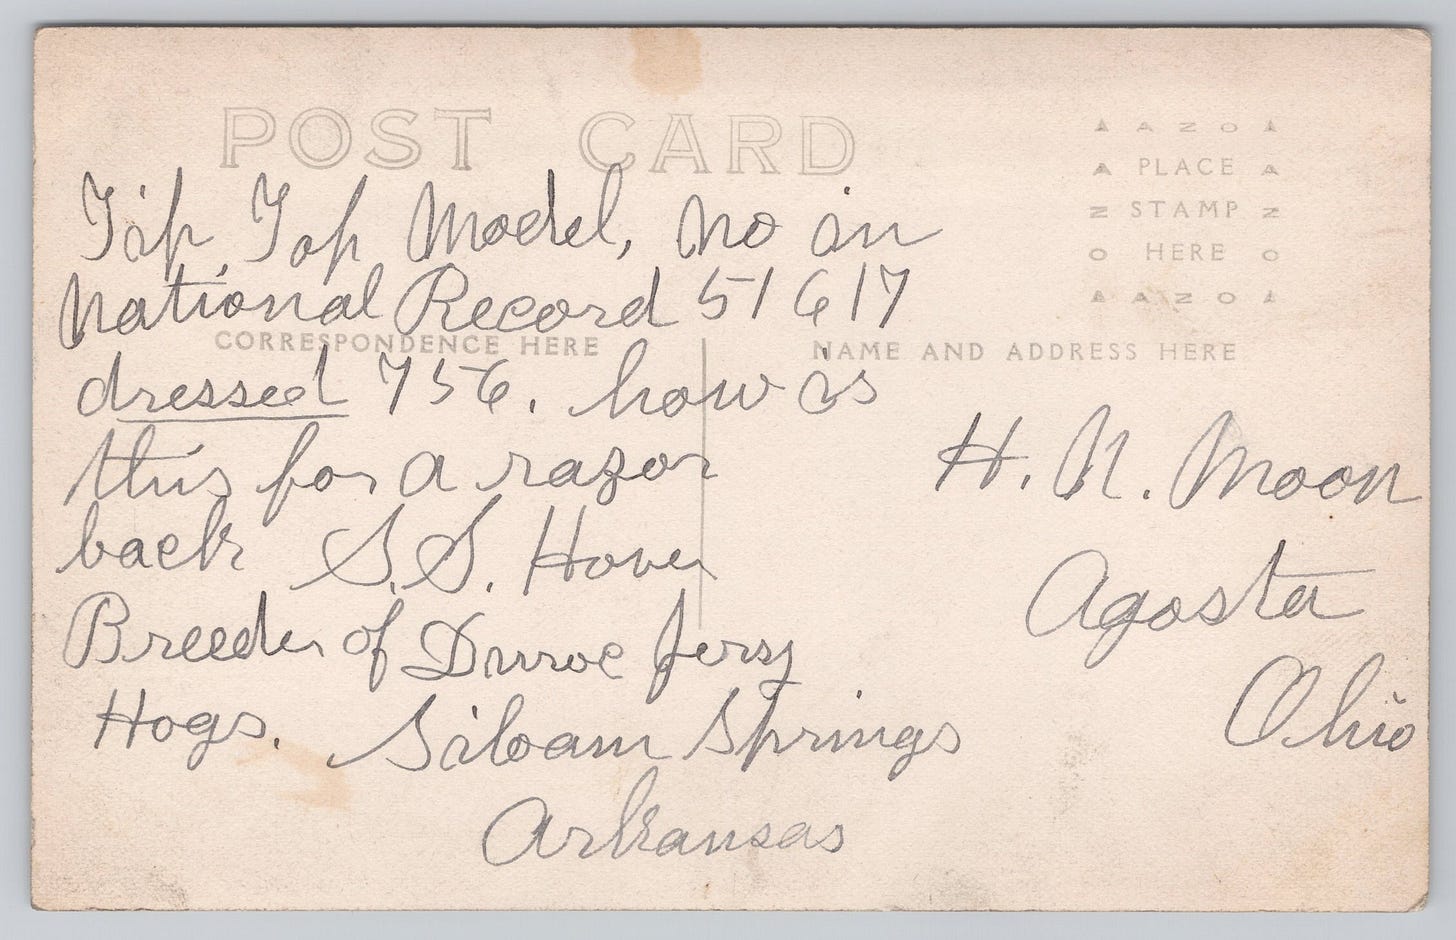 POST CARD
AZO
PLACE
STAMP
HERE
AZO
Tip Top Model, No in
National Record 51617
CORRESPONDENCE HERE
NAME AND ADDRESS HERE
dressed 756. how is
this for a razor
back S.S. Hover
Breeder of Duroc Jersy
Hogs. Siloam Springs
Arkansas
H. N. Moon
Agosta
Ohio